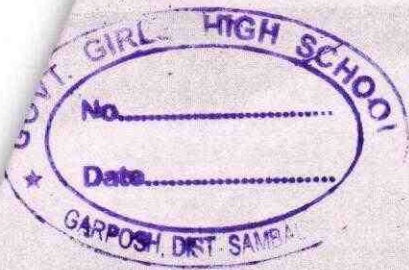 GOVT. GIRL HIGH SCHOOL
No..............................
Date..............................
GARPOSH, DIST SAMBAL